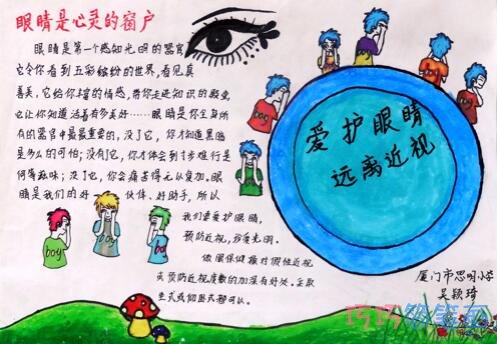 眼睛是心灵的窗户
眼睛是第一个感知光明的器官
它令你看到五彩缤纷的世界,看见真
善美,它给你丰富的情感,带你走进知识的殿堂,
也让你知道活着有多美好……眼睛是你全身所
有的器官中最最重要的,没了它,你才知道黑暗
是多么的可怕;没有了它,你才体会到寸步难行是
何等滋味;没了它,你会痛苦得无以复加。眼
睛是我们的好伙伴、好助手,所以
我们要爱护眼睛,
预防近视,珍爱光明。
做眼保健操对假性近视
及预防近视度数的加深有好处。
坐式或仰卧式都可以。
爱护眼睛
远离近视
厦门市思明小学
吴颖琦
boy
boy
boy
boy
boy